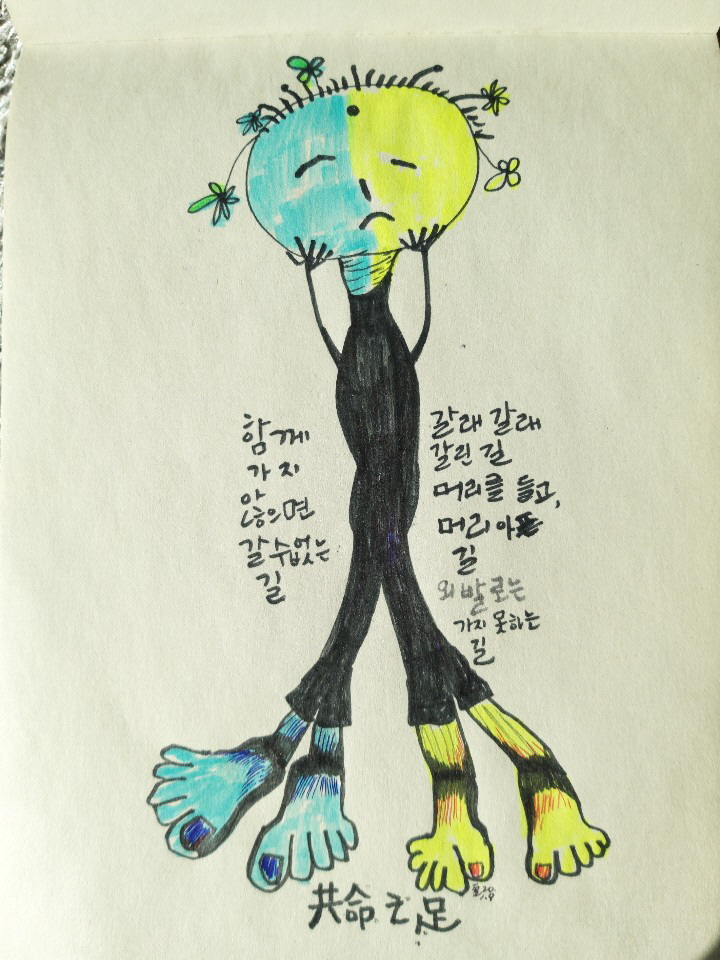 함께
가지
않으면
갈 수 없는
길
갈래 갈래
갈린 길
머리를 들고,
머리 아픈
길
외발로는
가지 못하는
길
共命之足